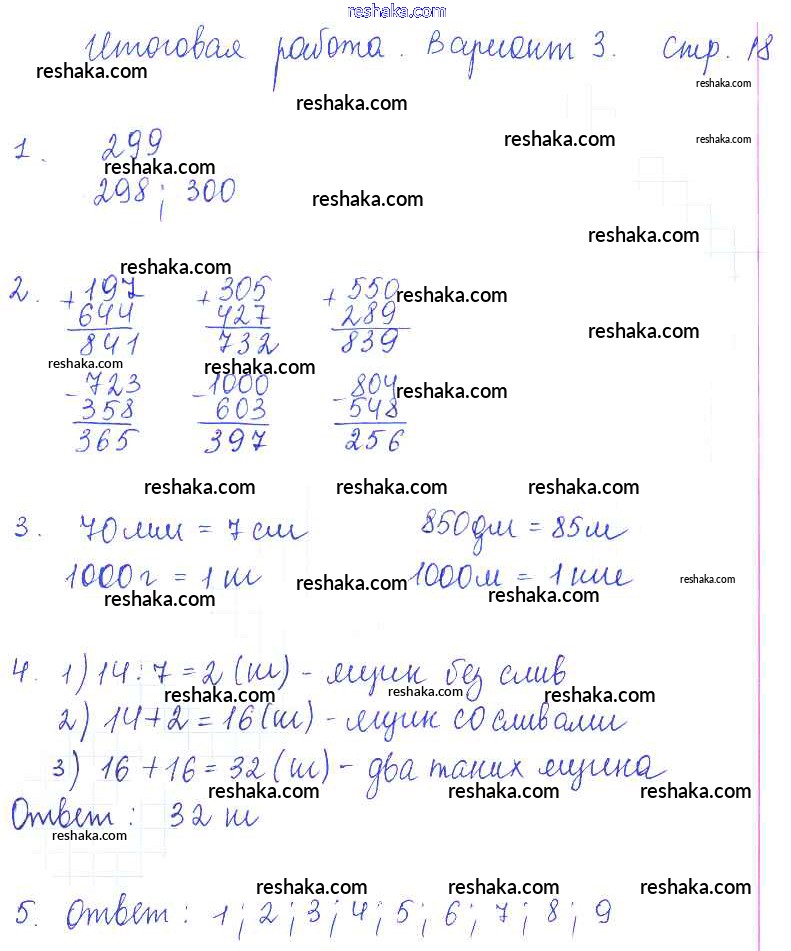 reshaka.com
Итоговая работа. Вариант 3. стр. 18
reshaka.com
reshaka.com
reshaka.com
reshaka.com
reshaka.com
1. 299
reshaka.com
298; 300
reshaka.com
reshaka.com
reshaka.com
2. +197 +305 +550
reshaka.com
644 427 289
reshaka.com
841 732 839
reshaka.com
reshaka.com
-723 -1000 -804
reshaka.com
358 603 548
365 397 256
reshaka.com reshaka.com reshaka.com
3. 70мм = 7см 850дм = 85м
1000г = 1кг 1000м = 1км
reshaka.com
reshaka.com
reshaka.com
reshaka.com
4. 1) 14:7=2(кг) - ящик без слив
reshaka.com reshaka.com reshaka.com
2) 14+2=16(кг) - ящик со сливами
3) 16+16=32(кг) - два таких ящика
reshaka.com reshaka.com reshaka.com
Ответ: 32 кг
reshaka.com
reshaka.com reshaka.com reshaka.com
5. Ответ: 1; 2; 3; 4; 5; 6; 7; 8; 9